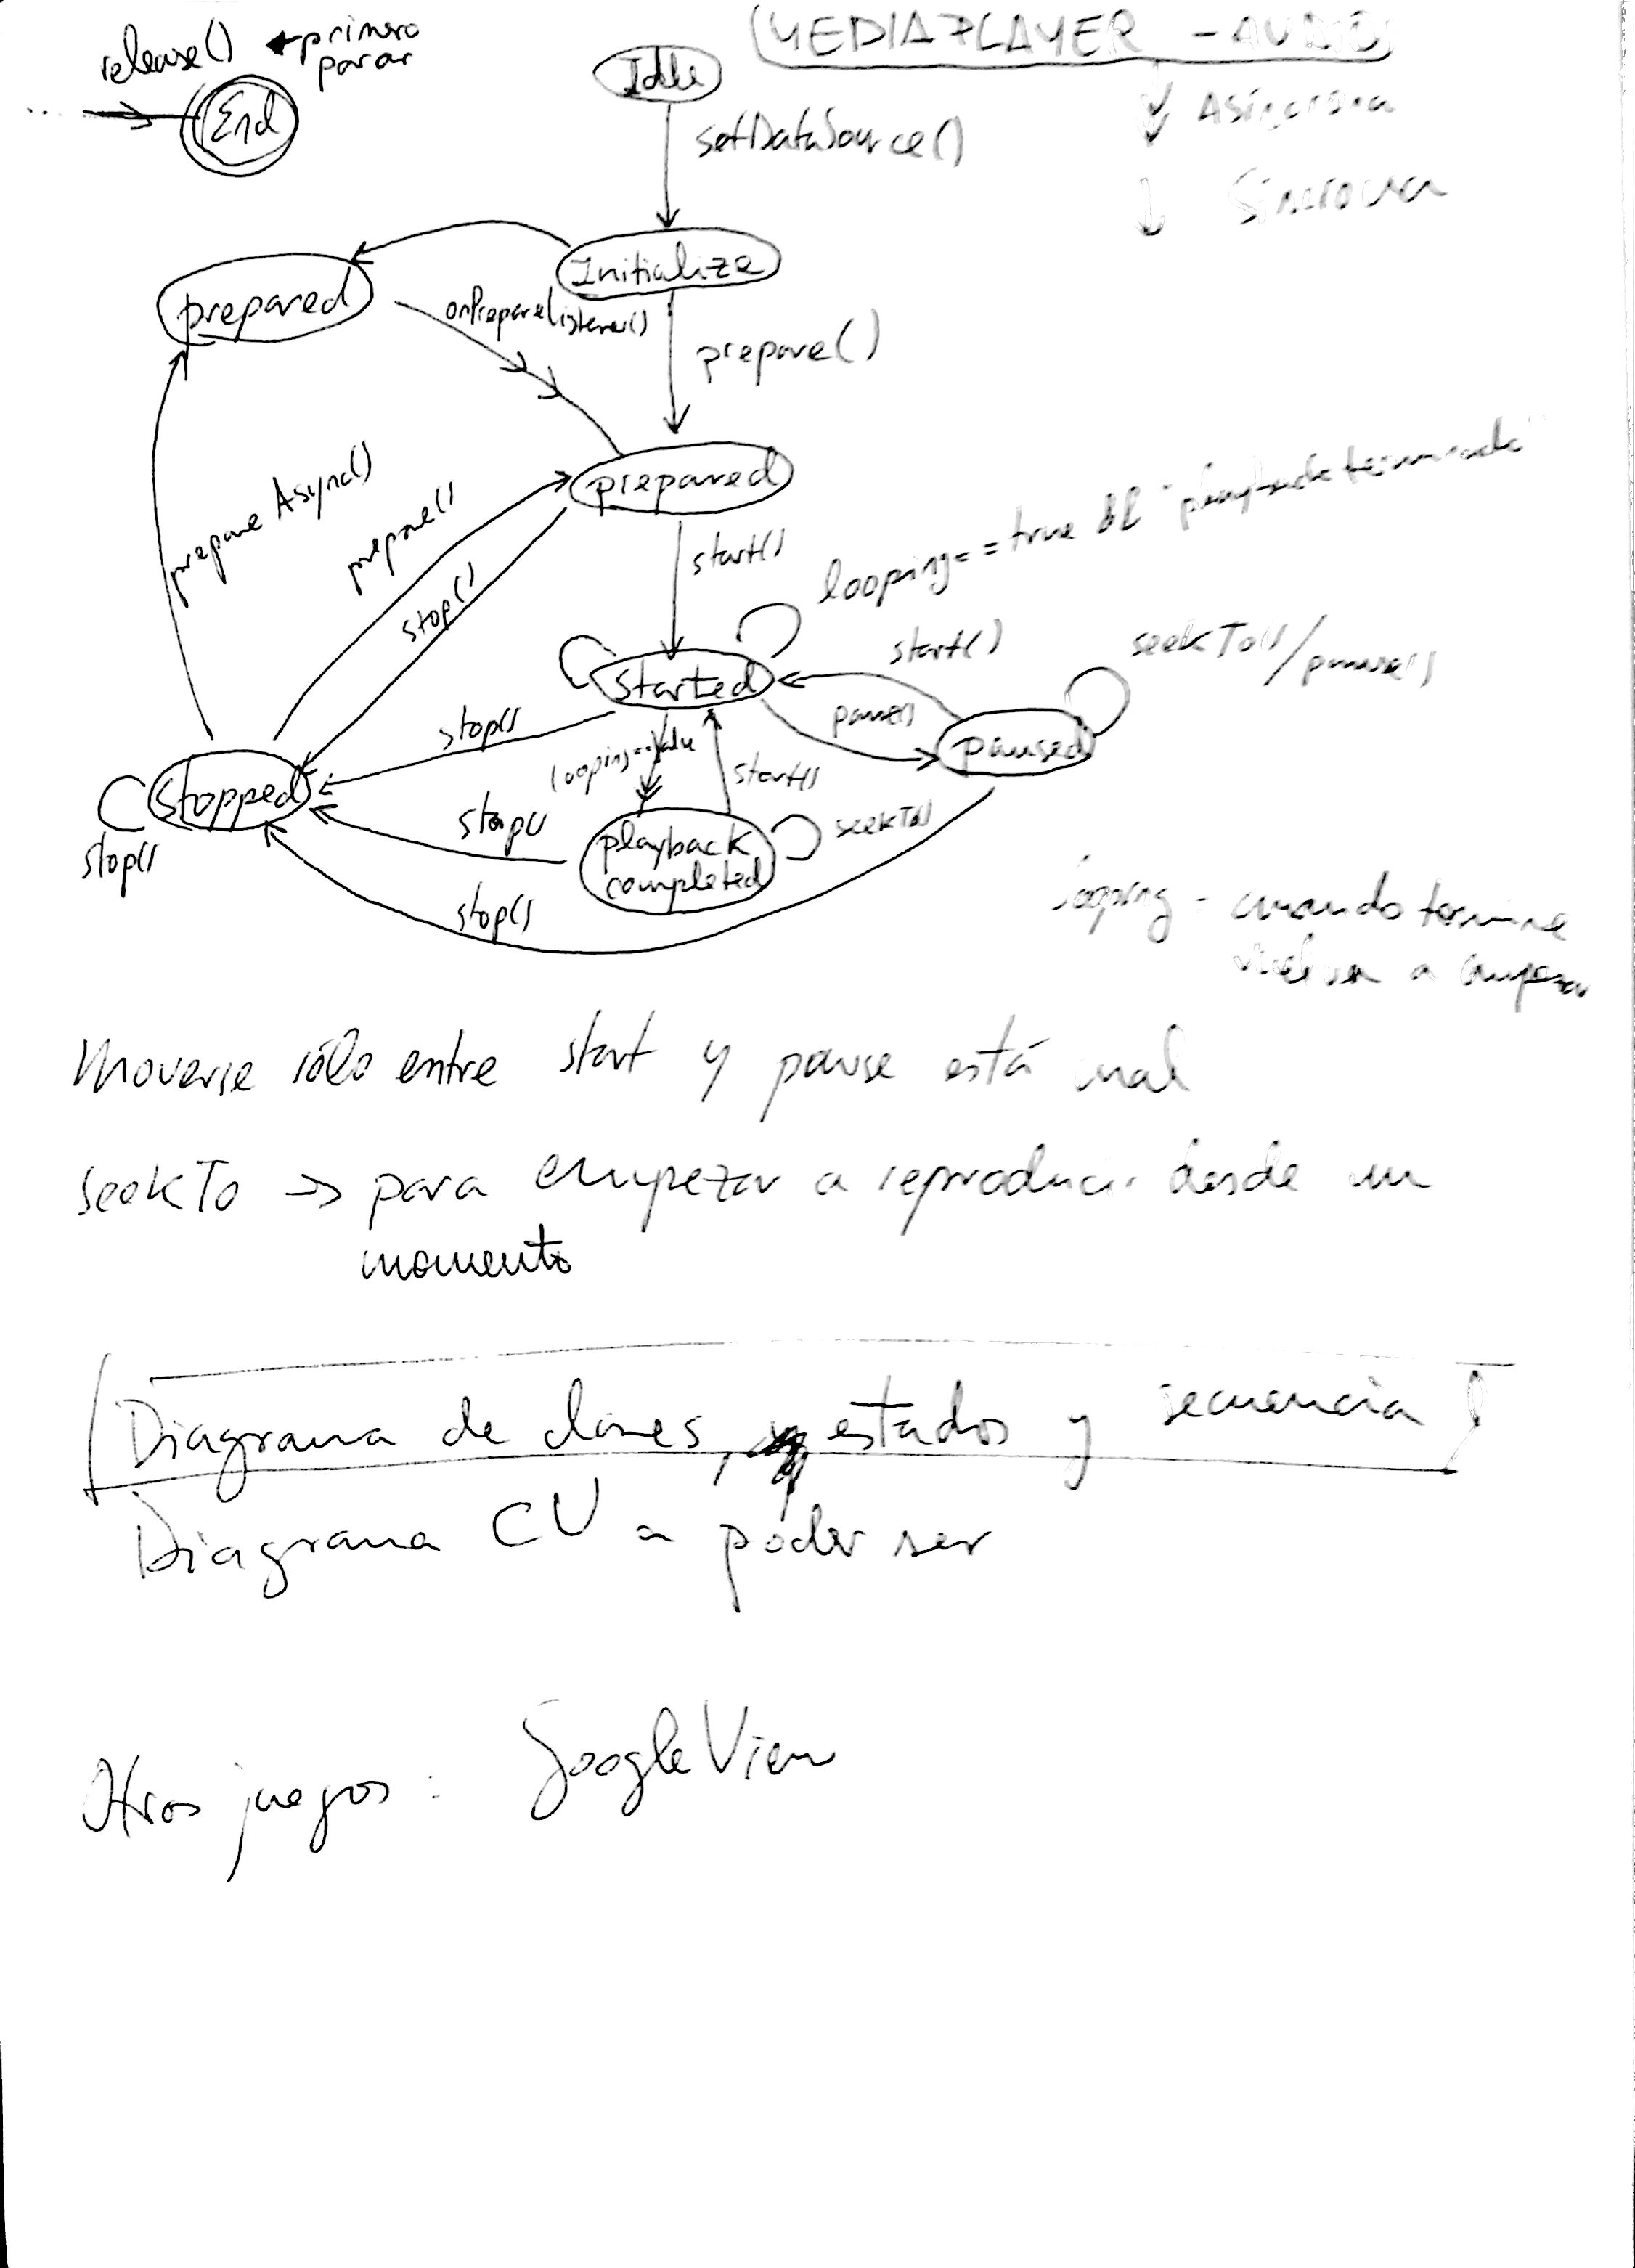 release() ← primero
parar
End
MEDIAPLAYER - AUDIO
Idle
Asíncrona
setDataSource()
Síncrona
Initialize
prepared
onPrepareListener()
prepare()
prepared
prepareAsync()
prepare()
stop()
start()
looping == true && "playback terminado"
started
start()
seekTo() / pause()
stop()
pause()
paused
looping==false
start()
stopped
stop()
stop()
playback
completed
seekTo()
stop()
looping = cuando termine
vuelva a empezar
Moverse sólo entre start y pause está mal
seekTo → para empezar a reproducir desde un
momento
Diagrama de clases, estados y secuencia
Diagrama CU a poder ser
Otros juegos: GoogleView